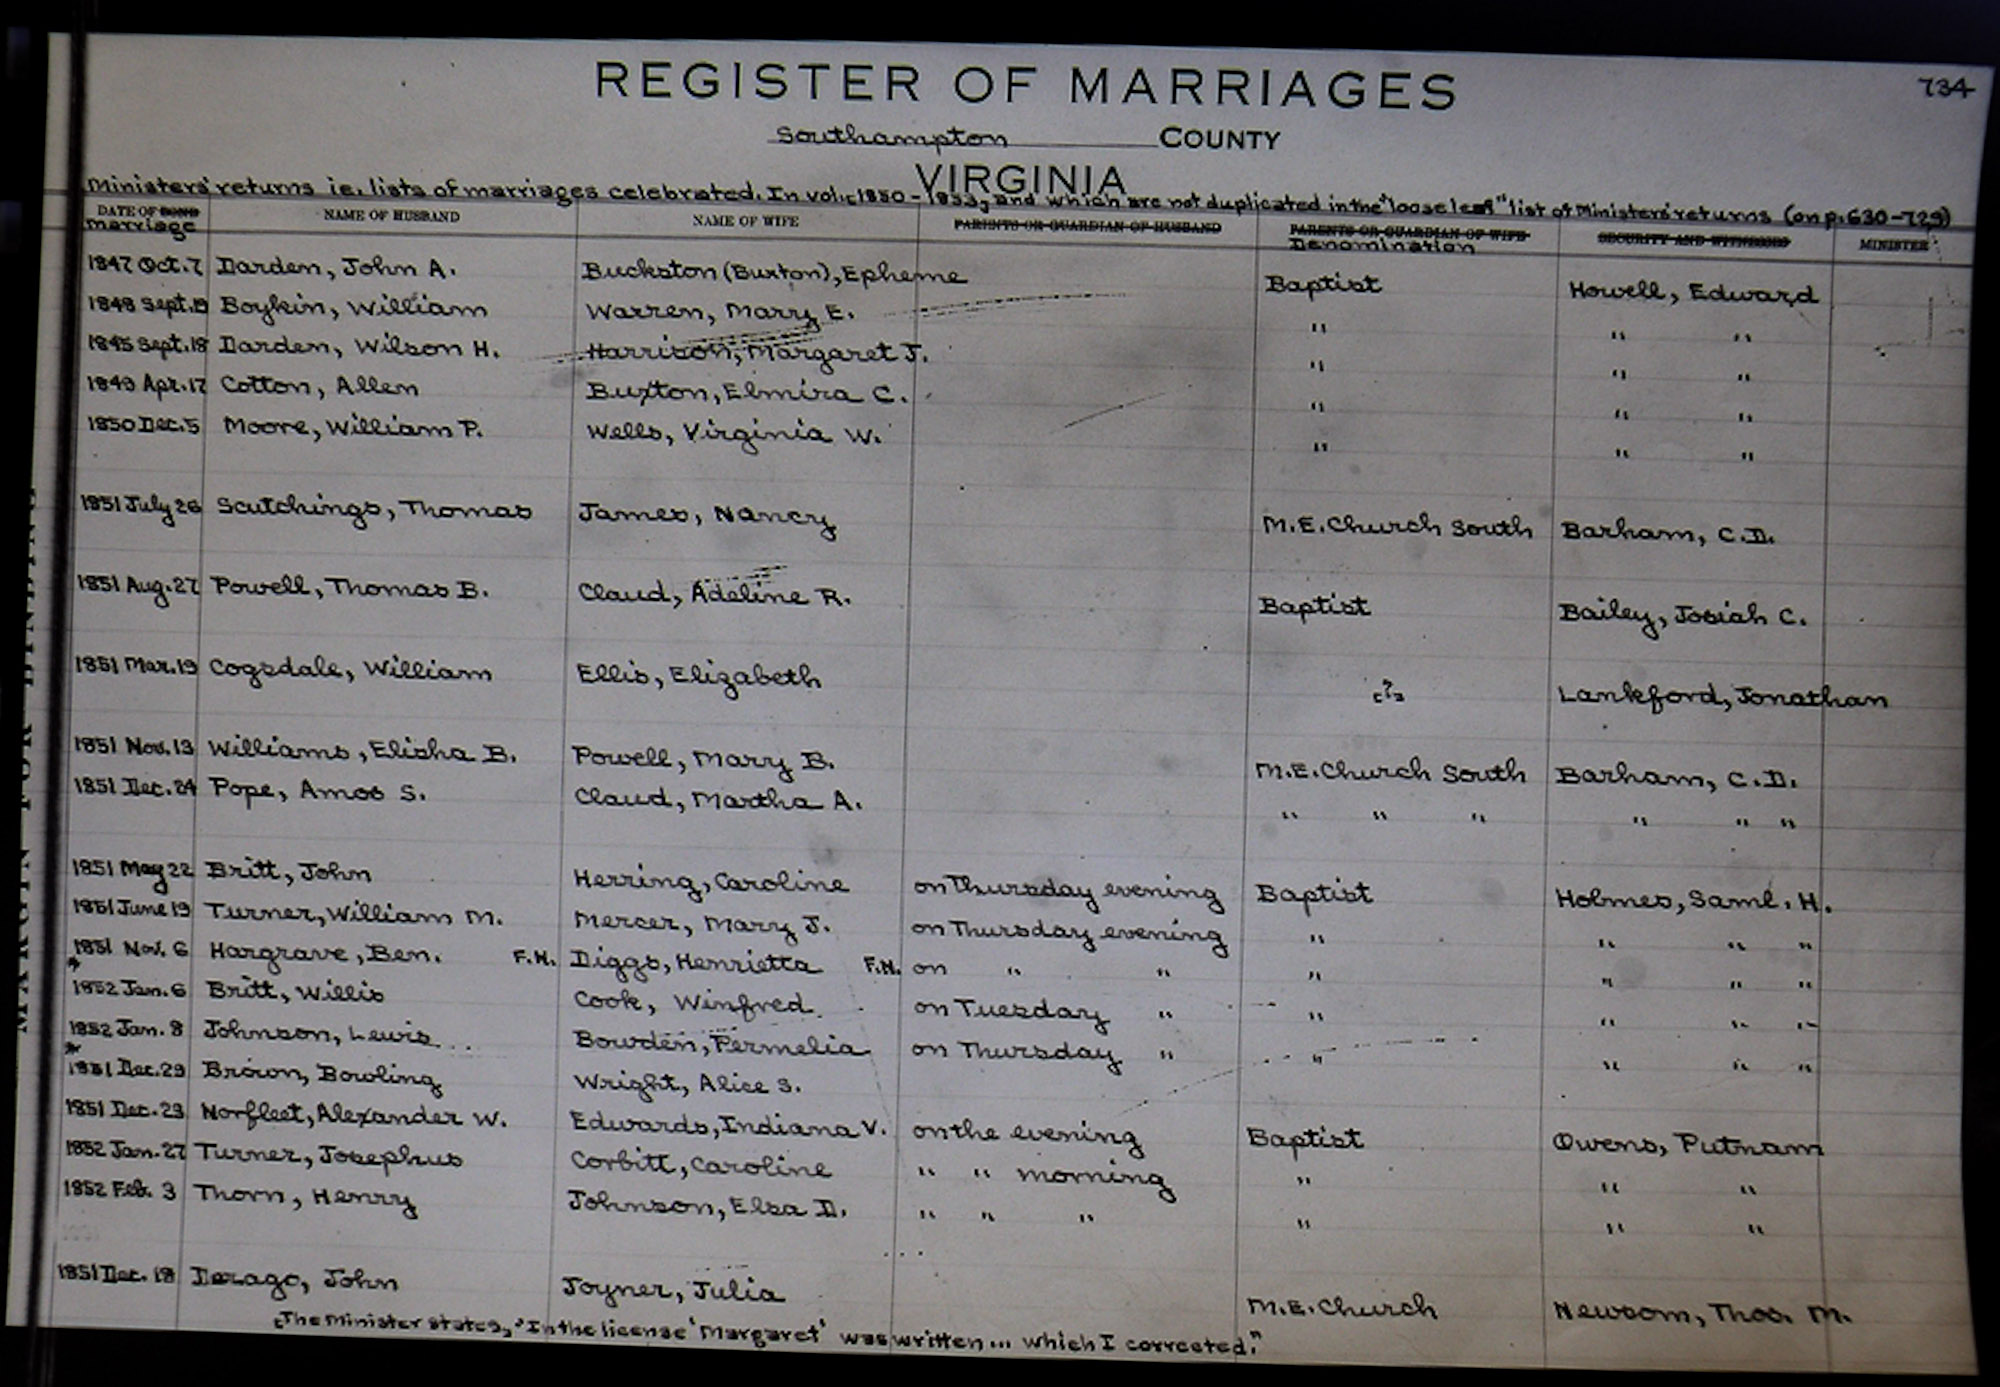 734
REGISTER OF MARRIAGES
Southampton COUNTY
VIRGINIA
Ministers' returns ie. lists of marriages celebrated. In vol. 1850-1853, and which are not duplicated in the "loose leaf" list of Ministers' returns (on p. 630-729)
DATE OF BOND marriage NAME OF HUSBAND NAME OF WIFE PARENTS OR GUARDIAN OF HUSBAND PARENTS OR GUARDIAN OF WIFE Denomination SECURITY AND WITNESSES MINISTER
1847 Oct. 7 Darden, John A. Buckston (Buxton), Epheme Baptist Howell, Edward
1848 Sept. 19 Boykin, William Warren, Mary E. " " "
1845 Sept. 18 Darden, Wilson H. Harrison, Margaret J. " " "
1849 Apr. 17 Cotton, Allen Buxton, Elmira C. " " "
1850 Dec. 5 Moore, William P. Wells, Virginia W. " " "
1851 July 26 Scutchings, Thomas James, Nancy M.E. Church South Barham, C.D.
1851 Aug. 27 Powell, Thomas B. Claud, Adeline R. Baptist Bailey, Josiah C.
1851 Mar. 19 Cogsdale, William Ellis, Elizabeth [?] Lankford, Jonathan
1851 Nov. 13 Williams, Elisha B. Powell, Mary B. M.E. Church South Barham, C.D.
1851 Dec. 24 Pope, Amos S. Claud, Martha A. " " " " " "
1851 May 22 Britt, John Herring, Caroline on Thursday evening Baptist Holmes, Saml. H.
1851 June 19 Turner, William M. Mercer, Mary J. on Thursday evening " " " "
1851 Nov. 6 Hargrave, Ben. F.N. Diggs, Henrietta F.N. on " " " " " "
1852 Jan. 6 Britt, Willis Cook, Winfred on Tuesday " " " " "
1852 Jan. 8 Johnson, Lewis Bowden, Permelia on Thursday " " " " "
1851 Dec. 29 Brown, Bowling Wright, Alice S.
1851 Dec. 23 Norfleet, Alexander W. Edwards, Indiana V. on the evening Baptist Owens, Putnam
1852 Jan. 27 Turner, Josephus Corbitt, Caroline " " morning " " "
1852 Feb. 3 Thorn, Henry Johnson, Elsa D. " " " " " "
1851 Dec. 18 John Joyner, Julia M.E. Church Newsom, Thos. M.
[The Minister states, "In the license 'Margaret' was written ... which I corrected."
MARGIN FOR BINDING